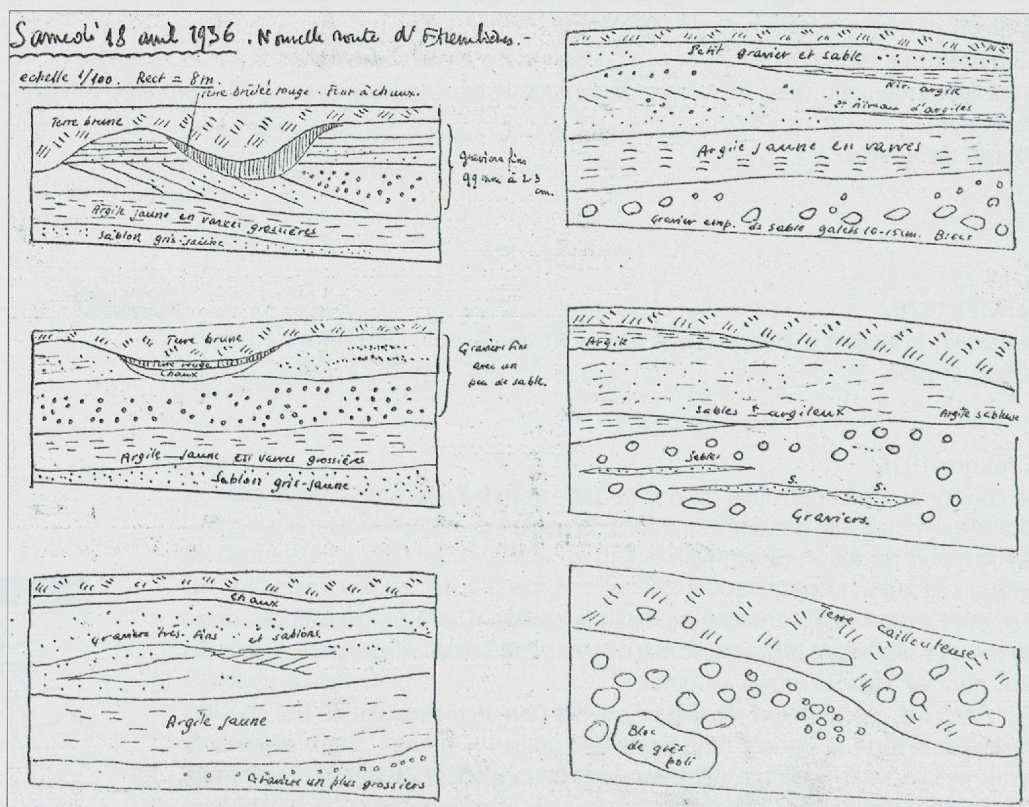 Samedi 18 avril 1936. Nouvelle route d'Etrembières.-
echelle 1/100. Rect = 8m.
Terre brulée rouge. Four à chaux.
Terre brune
Graviers fins
à 2-3
cm.
Argile jaune en varves grossières
sablon gris-jaune
Terre brune
Terre rouge
chaux
Graviers fins
avec un
peu de sable.
Argile jaune en varves grossières
Sablon gris-jaune
chaux
graviers très fins et sablons
Argile jaune
Graviers un plus grossiers
Petit gravier et sable
Niv. argile
2e niveau d'argiles
Argile jaune en varves
Gravier emp. ds sable galets 10-15cm. Blocs
Argile
sables argileux
Argile sableuse
Sables
S.
S.
Graviers.
Terre cailleuteuse
Bloc
de grès
poli